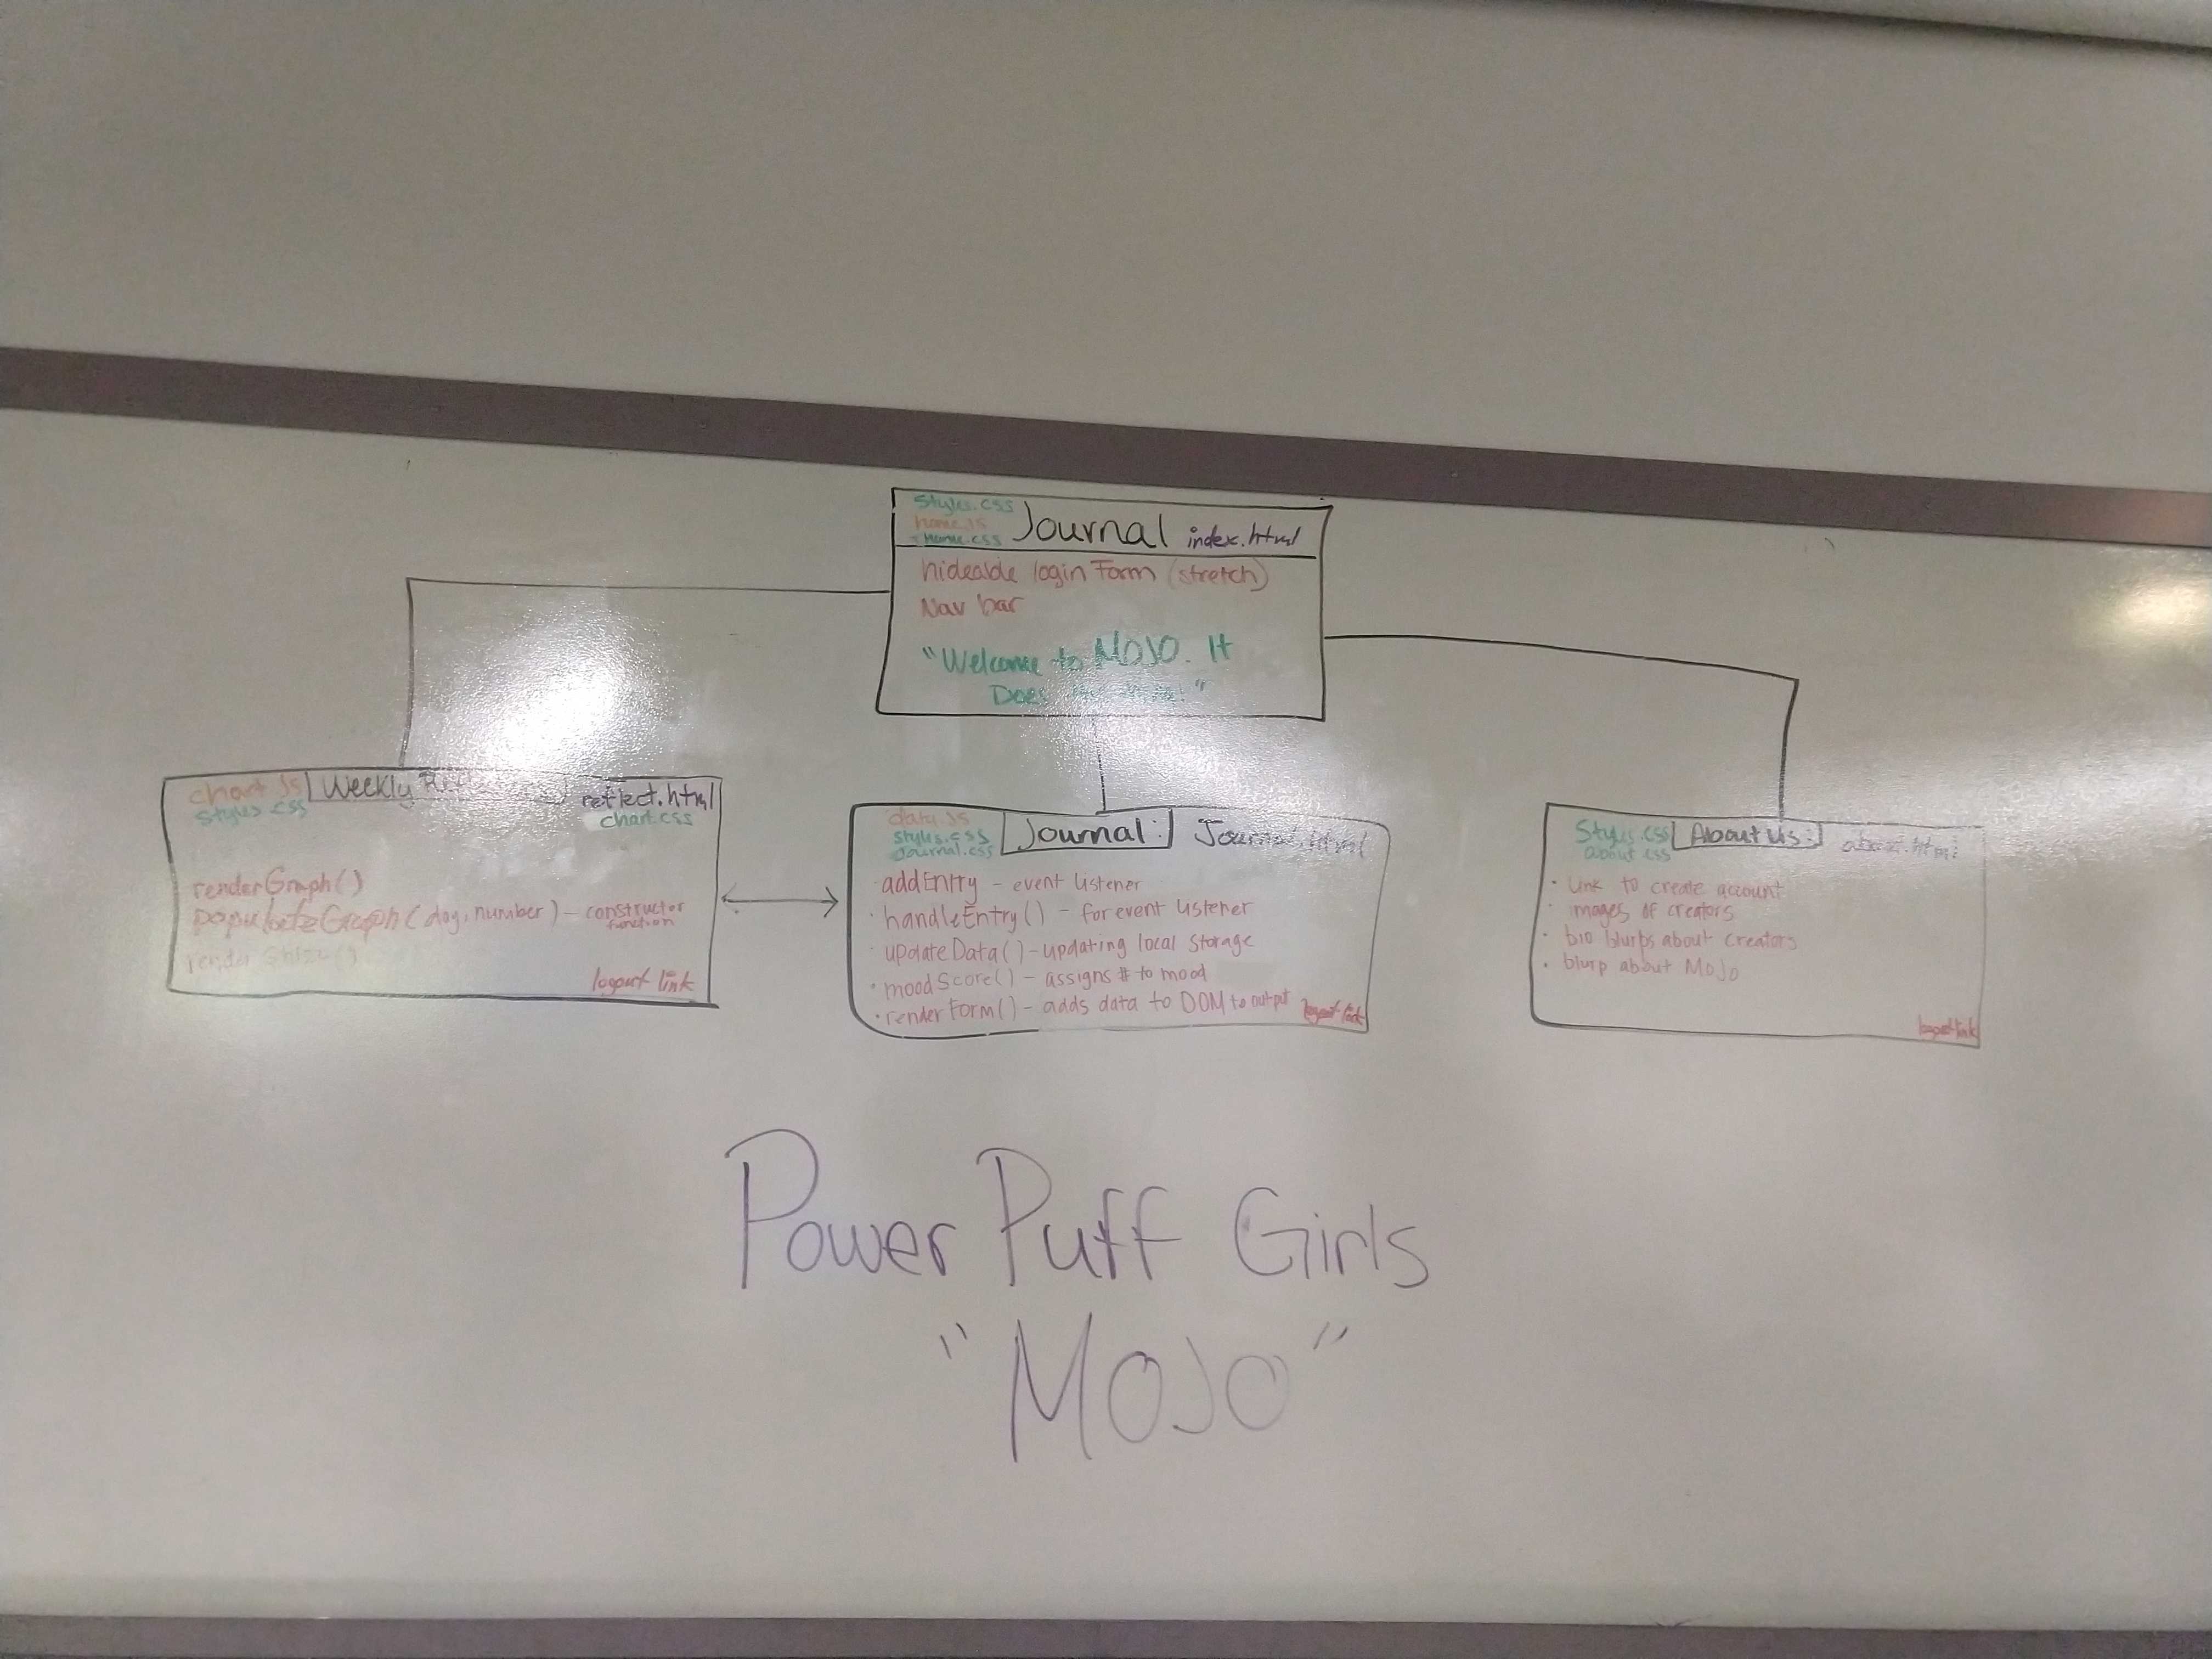 Styles.css
home.js
Home.css
Journal
index.html
hideable login Form (stretch)
Nav bar
"Welcome to MOJO. It
Does
chart.js
styles.css
Weekly
reflect.html
chart.css
renderGraph()
populateGraph(day, number) - constructor
function
render
logout link
data.js
styles.css
Journal.css
Journal:
Journal.html
addEntry - event listener
· handleEntry() - for event listener
· updateData() - updating local storage
· moodScore() - assigns # to mood
· renderForm() - adds data to DOM to output
logout link
Styles.css
about.css
About Us:
about.html
· Link to create account
· images of creators
· bio blurbs about creators
· blurp about MoJo
logout link
Power Puff Girls
"MOJO"